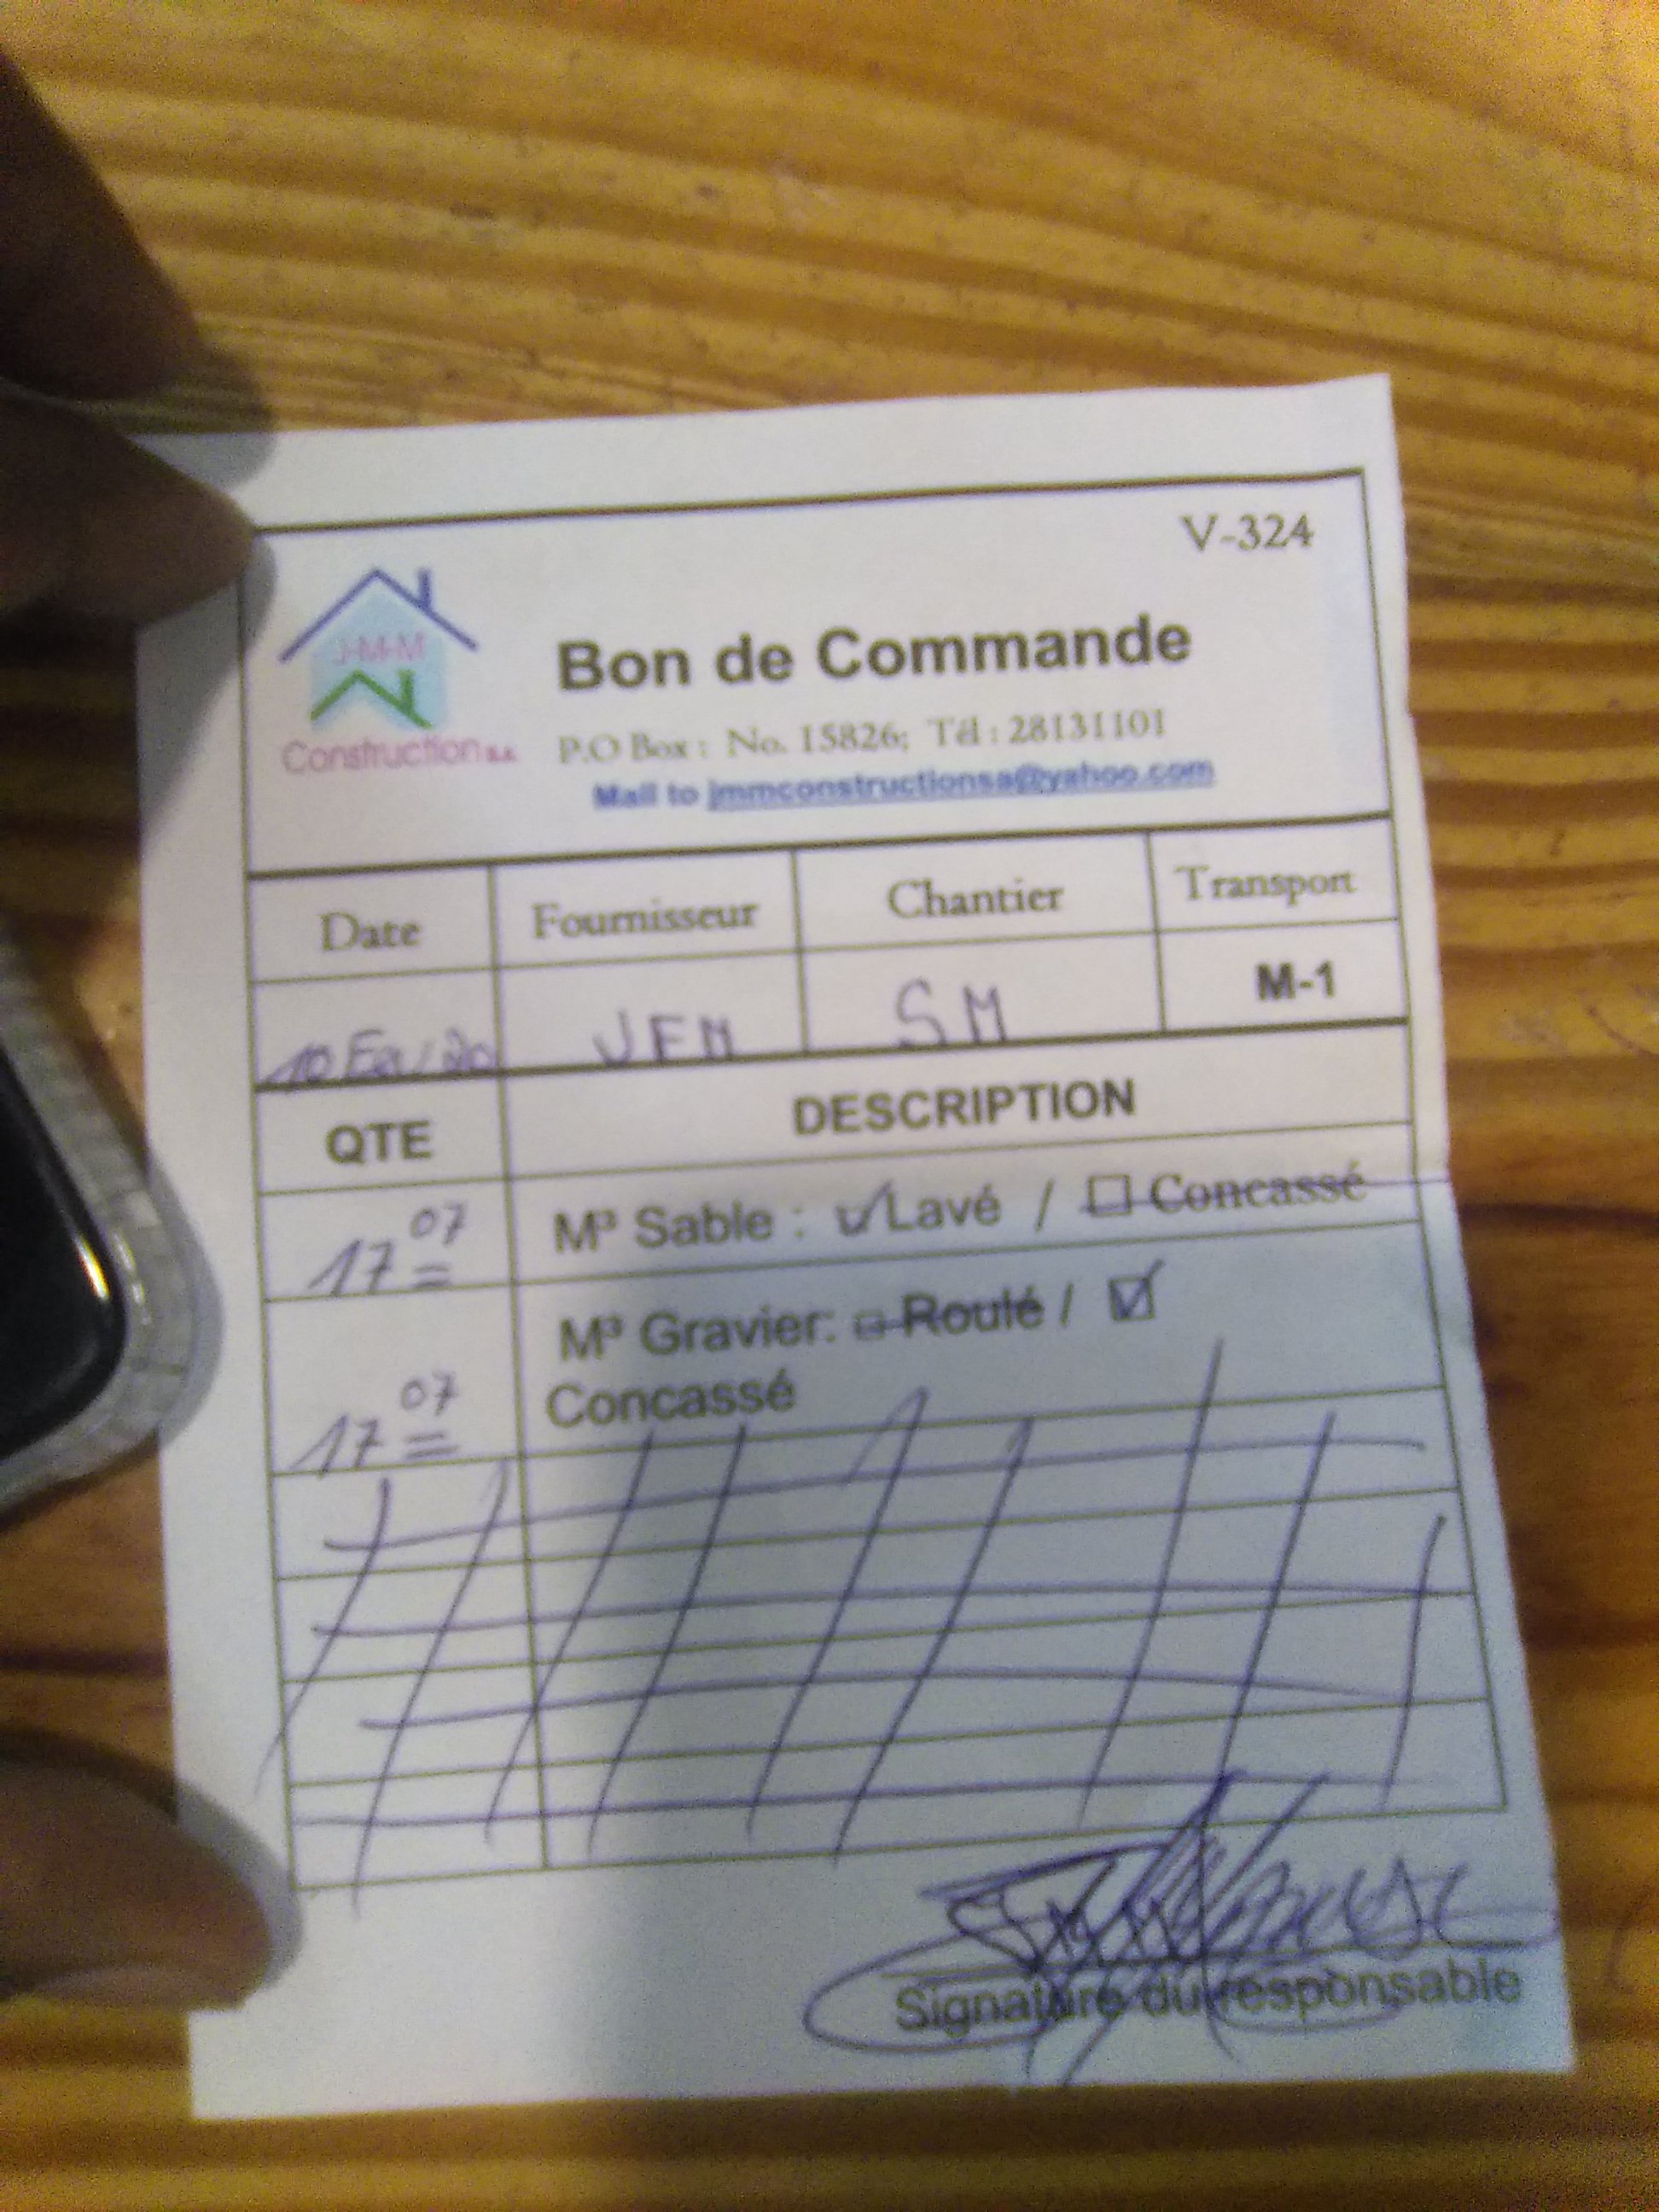 V-324
J-M-M
Construction s.a.
Bon de Commande
P.O Box : No. 15826; Tél : 28131101
Mail to jmmconstructionsa@yahoo.com
Date Fournisseur Chantier Transport
10 JFM SM M-1
QTE DESCRIPTION
17 07 M³ Sable : Lavé / Concassé
M³ Gravier: Roulé /
17 07 Concassé
Signature du responsable